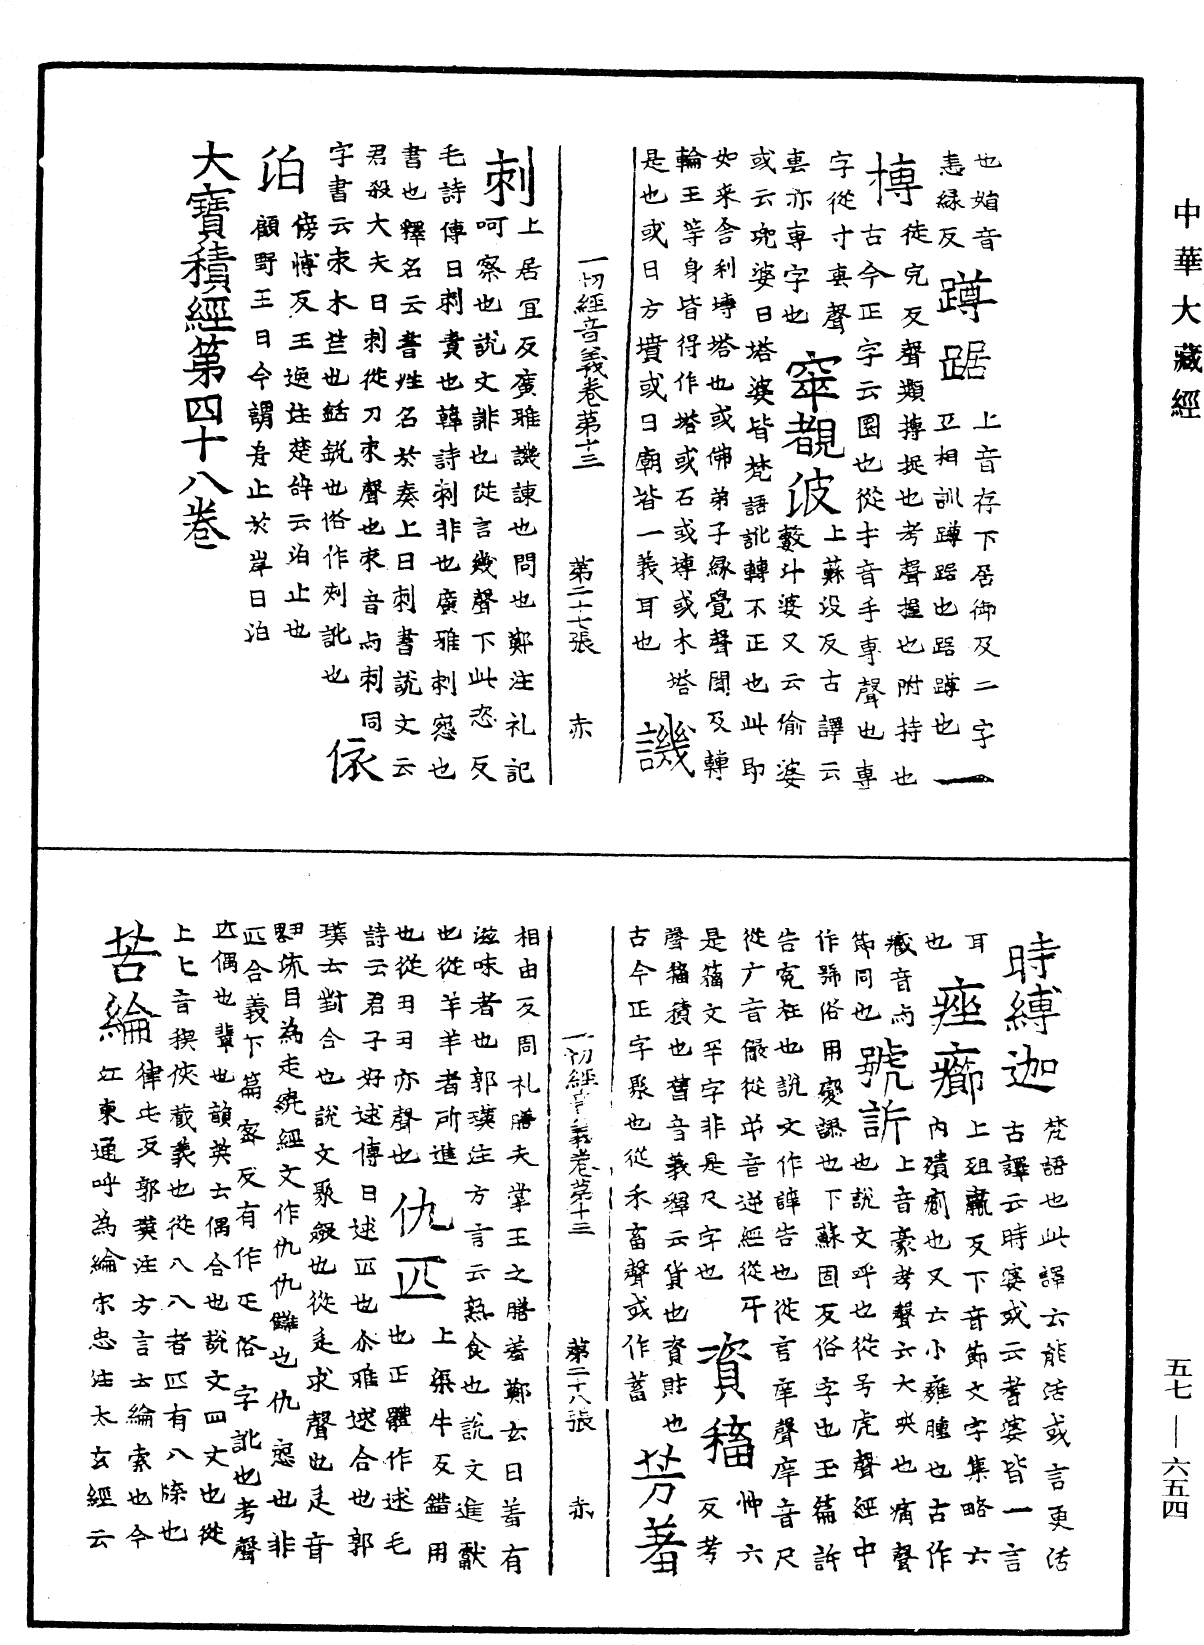 中華大藏經
也媨音
恚緣反 蹲踞 上音存下居御反二字
互相訓蹲踞也踞蹲也 一
摶 徒完反聲類摶捉也考聲握也附持也
古今正字云圜也從扌音手專聲也專
字從寸叀聲 窣覩波 上蘇没反古譯云
叀亦專字也 藪斗婆又云偷婆
或云兜婆曰塔婆皆梵語訛轉不正也此即
如来舍利塼塔也或佛弟子緣覺聲聞及轉
輪王等身皆得作塔或石或塼或木塔
是也或曰方墳或曰廟皆一義耳也 譏
一切經音義卷第十三 第二十七張 赤
刺 上居宜反廣雅譏諫也問也鄭注礼記
呵察也說文誹也從言幾聲下此恣反
毛詩傳曰刺責也韓詩刺非也廣雅刺怨也
書也釋名云書姓名於奏上曰刺書説文云
君殺大夫曰刺從刀朿聲也朿音与刺同
字書云朿木芒也銛鋭也俗作刾訛也 依
泊 傍愽反王逸注楚辞云泊止也
顧野王曰今謂舟止於岸曰泊
大寶積經第四十八卷
時縛迦 梵語也此譯云能活或言更活
古譯云時婆或云耆婆皆一言
耳 痤癤 上徂羸反下音節文字集略云
也 内瘡瘡也又云小癰腫也古作
㘸音与 號訴 上音豪考聲云大哭也痛聲
節同也 也說文呼也從号虎聲經中
作号俗用變謬也下蘇固反俗字也玉篇訴
告寃枉也説文作諦告也從言庠聲庠音尺
從广音儼從屰音逆經從干
是籀文罕字非是尺字也 資稸 忡六
反考
聲稸積也舊音義釋云貨也資財也
古今正字聚也從禾畜聲或作蓄 芳羞
一切經音義卷第十三 第二十八張 赤
相由反周礼膳夫掌王之膳羞鄭玄曰羞有
滋味者也郭璞注方言云熟食也説文進獻
也從羊羊者所進
也從丑丑亦聲也 仇匹 上渠牛反錯用
也正體作逑毛
詩云君子好逑傳曰逑匹也尒雅逑合也郭
璞云對合也說文聚斂也從辵求聲也辵音
丑略反目為走繞經文作仇仇讎也仇怨也非
匹合義下篇蜜反有作疋俗字訛也考聲
匹偶也輩也韻英云偶合也説文四丈也從
上匸音稧俠藏義也從八八者匹有八牒也
苦綸 律屯反郭璞注方言云綸索也今
江東通呼為綸宋忠注太玄經云
五七—六五四